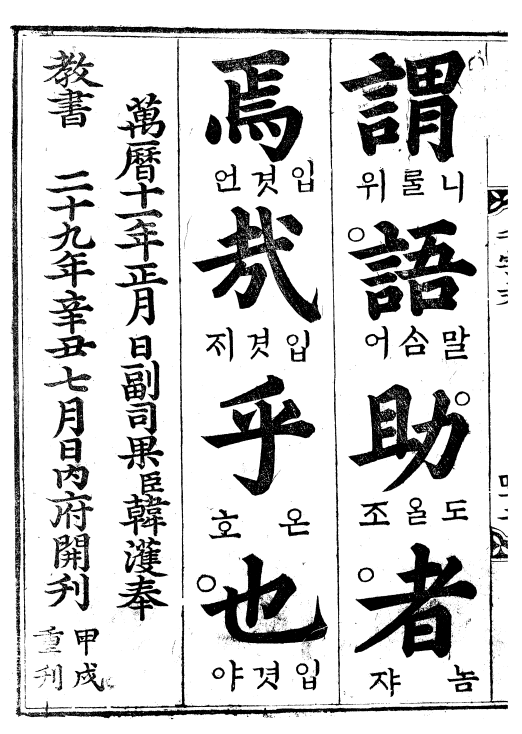 謂
니ᄅᆞᆯ위
語
말ᄉᆞᆷ어
助
도올조
者
놈쟈
焉
입겻언
哉
입겻ᄌᆡ
乎
온호
也
입겻야
萬曆十一年正月 日副司果臣韓濩奉
教書 二十九年辛丑七月日內府開刋
甲戌
重刋